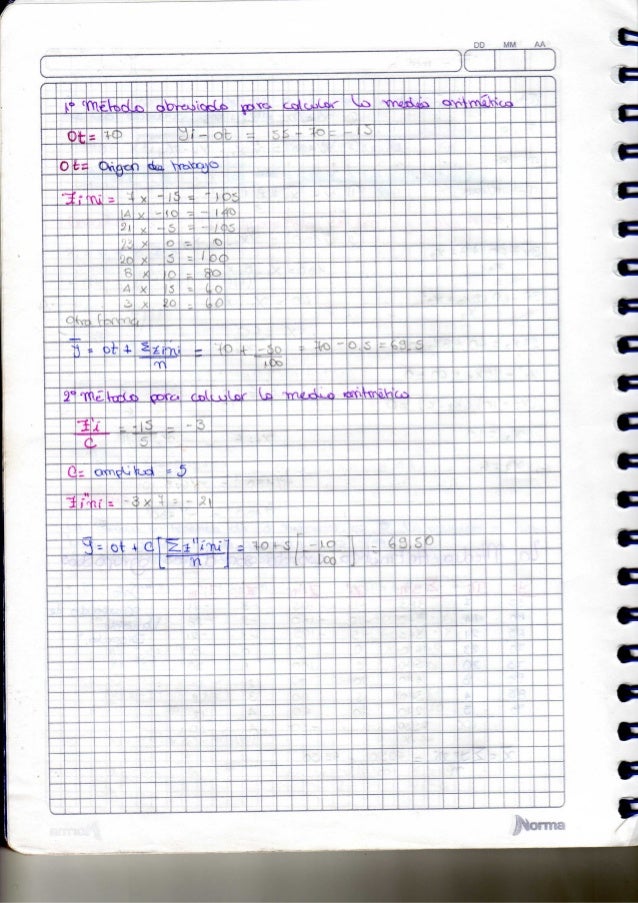 DD MM AA
1º Método abreviado para calcular la media aritmética
Ot = 70 yi - ot = 55 - 70 = -15
Ot = Origen de trabajo
Z'ini = 7 x -15 = -105
14 x -10 = -140
21 x -5 = -105
23 x 0 = 0
20 x 5 = 100
8 x 10 = 80
4 x 15 = 60
3 x 20 = 60
Otra forma
ȳ = ot + Σzini / n = 70 + -50 / 100 = 70 - 0.5 = 69.5
2º Método para calcular la media aritmética
Z'i / C = -15 / 5 = -3
C = amplitud = 5
Z''ini = -3 x 7 = -21
ȳ = ot + C [Σz''ini / n] = 70 + 5 [-10 / 100] = 69,50
Norma